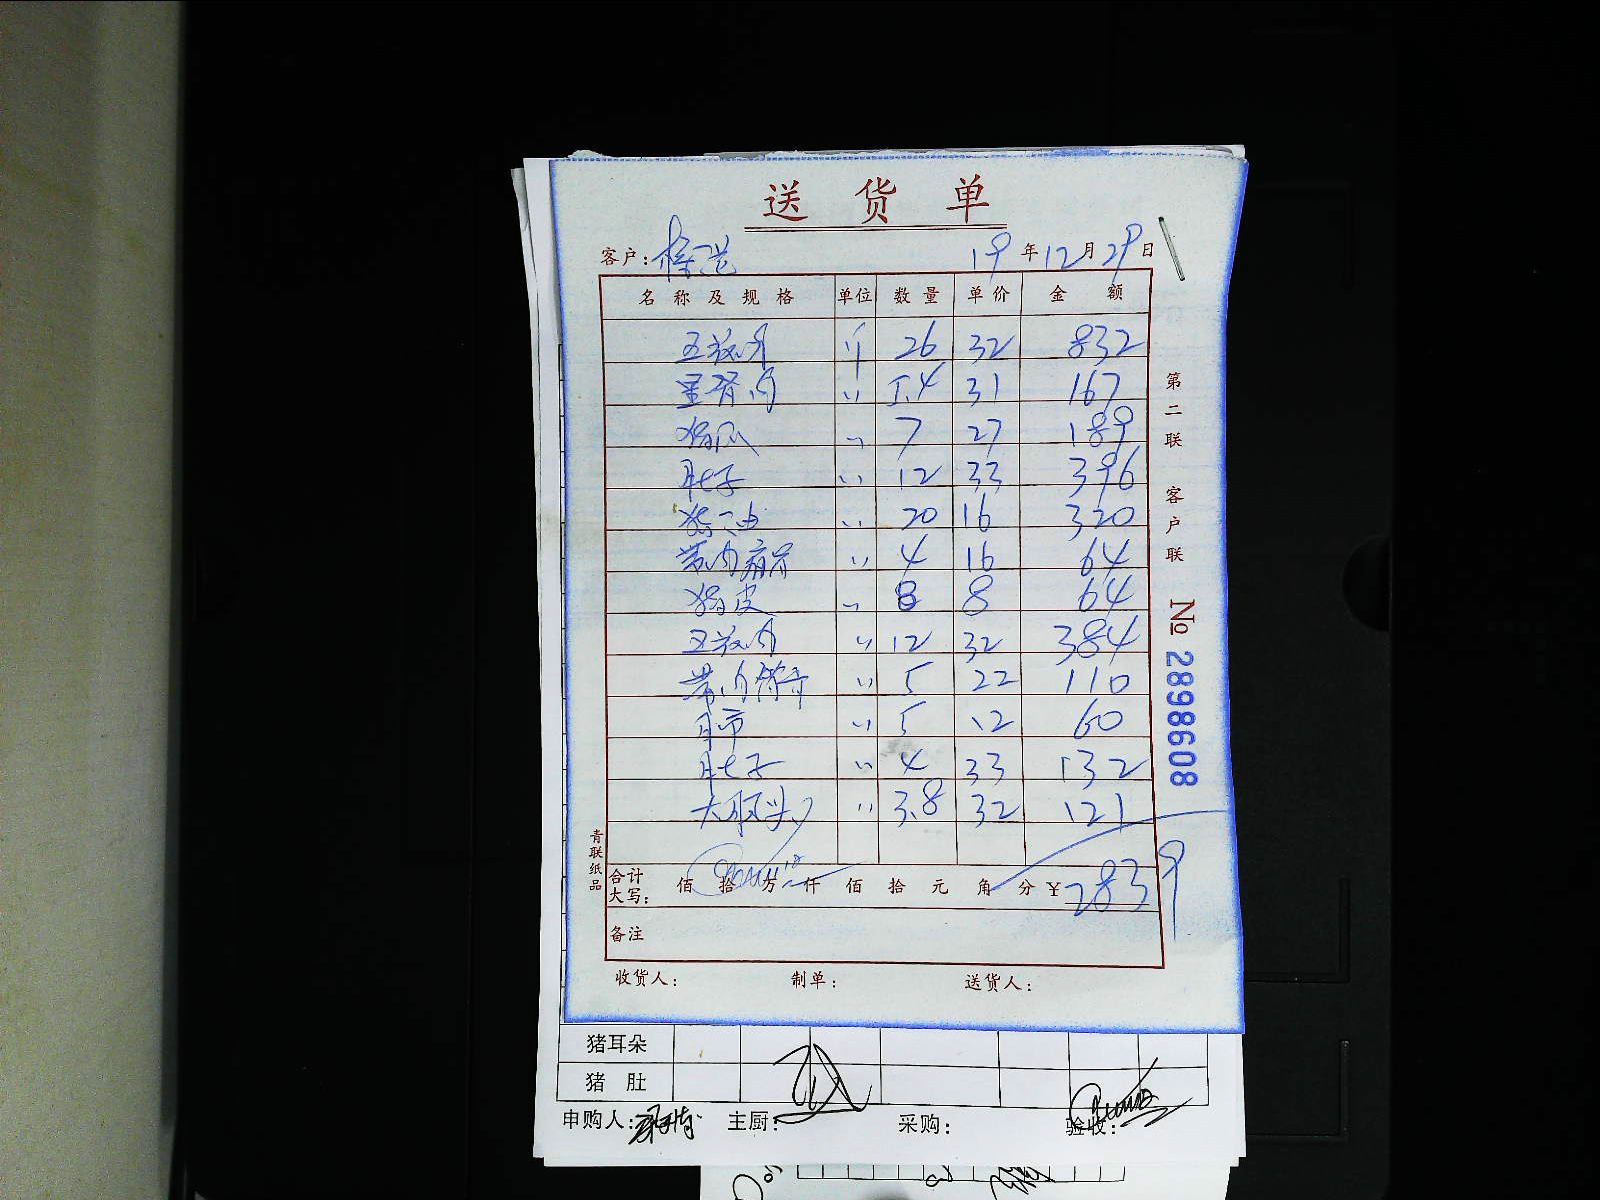 送货单
客户: 19年12月29日
名称及规格 单位 数量 单价 金额
五花肉 斤 26 32 832
里脊肉 〃 5.4 31 167
猪爪 〃 7 27 189
肚子 〃 12 33 396
猪油 〃 20 16 320
带肉扇骨 〃 4 16 64
猪皮 〃 8 8 64
五花肉 〃 12 32 384
带肉筒骨 〃 5 22 110
肺 〃 5 12 60
肚子 〃 4 33 132
大 〃 3.8 32 121
合计大写: 佰拾万仟佰拾元角分 ¥2839
备注
收货人: 制单: 送货人:
第二联 客户联
№ 2898608
青联纸品
猪耳朵
猪肚
申购人: 主厨: 采购: 验收: